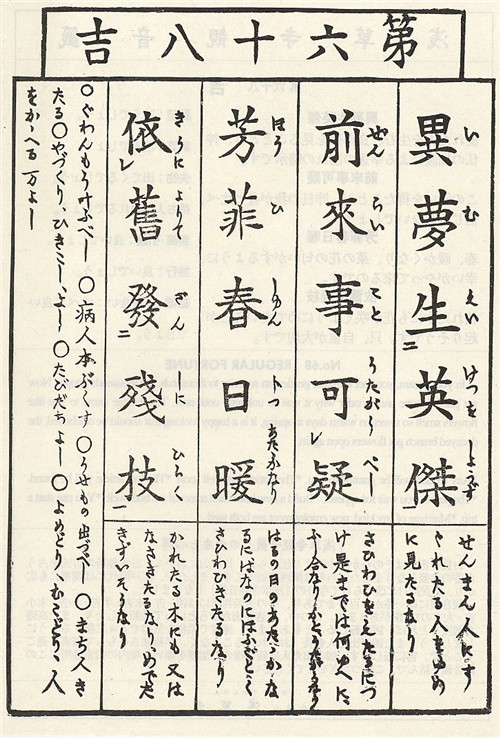 第六十八吉
異夢生英傑
せんまん人にす
ぐれたる人をゆめ
に見たるなり
前來事可疑
さひわひをえたるにつ
け是までは何
芳菲春日暖
はるの日のあたゝかな
るにはなのにほふごとく
さひわひきたるなり
依舊發殘枝
かれたる木にも又は
なさきたるなりめでた
きずいそうなり
〇ぐわんもうかなふべし 〇病人本ぶくす 〇うせもの出づべし 〇まち人き
たる〇やづくり、ひきこし、よし 〇たびだちよし 〇よめどり、むことり、人
をかゝへる万よし